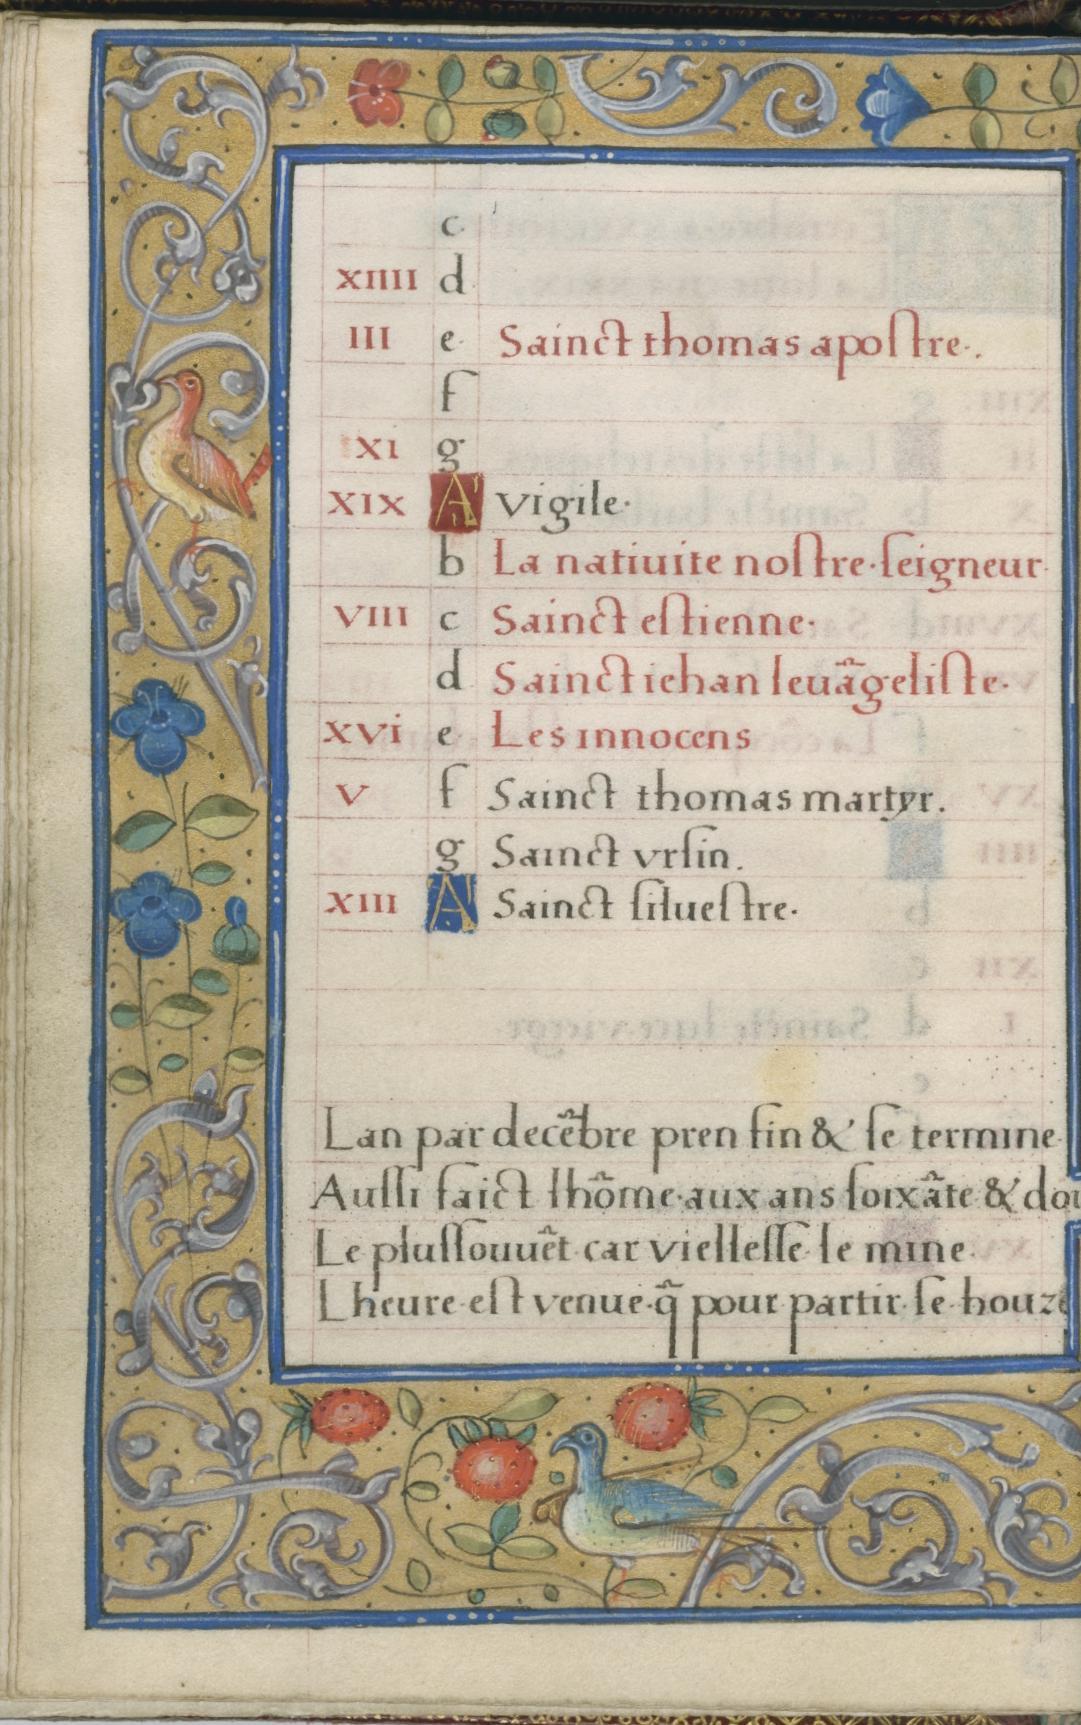 c
XIIII d
III e Sainct thomas apostre.
f
XI g
XIX A vigile.
b La natiuite nostre seigneur
VIII c Sainct estienne.
d Sainct iehan leuãgeliste.
XVI e Les innocens
V f Sainct thomas martyr.
g Sainct vrsin.
XIII A Sainct siluestre.
Lan par decẽbre pren fin & se termine
Aussi faict lhõme aux ans soixãte & dou
Le plussouuẽt car viellesse le mine
Lheure est venue q̃ pour partir se houze